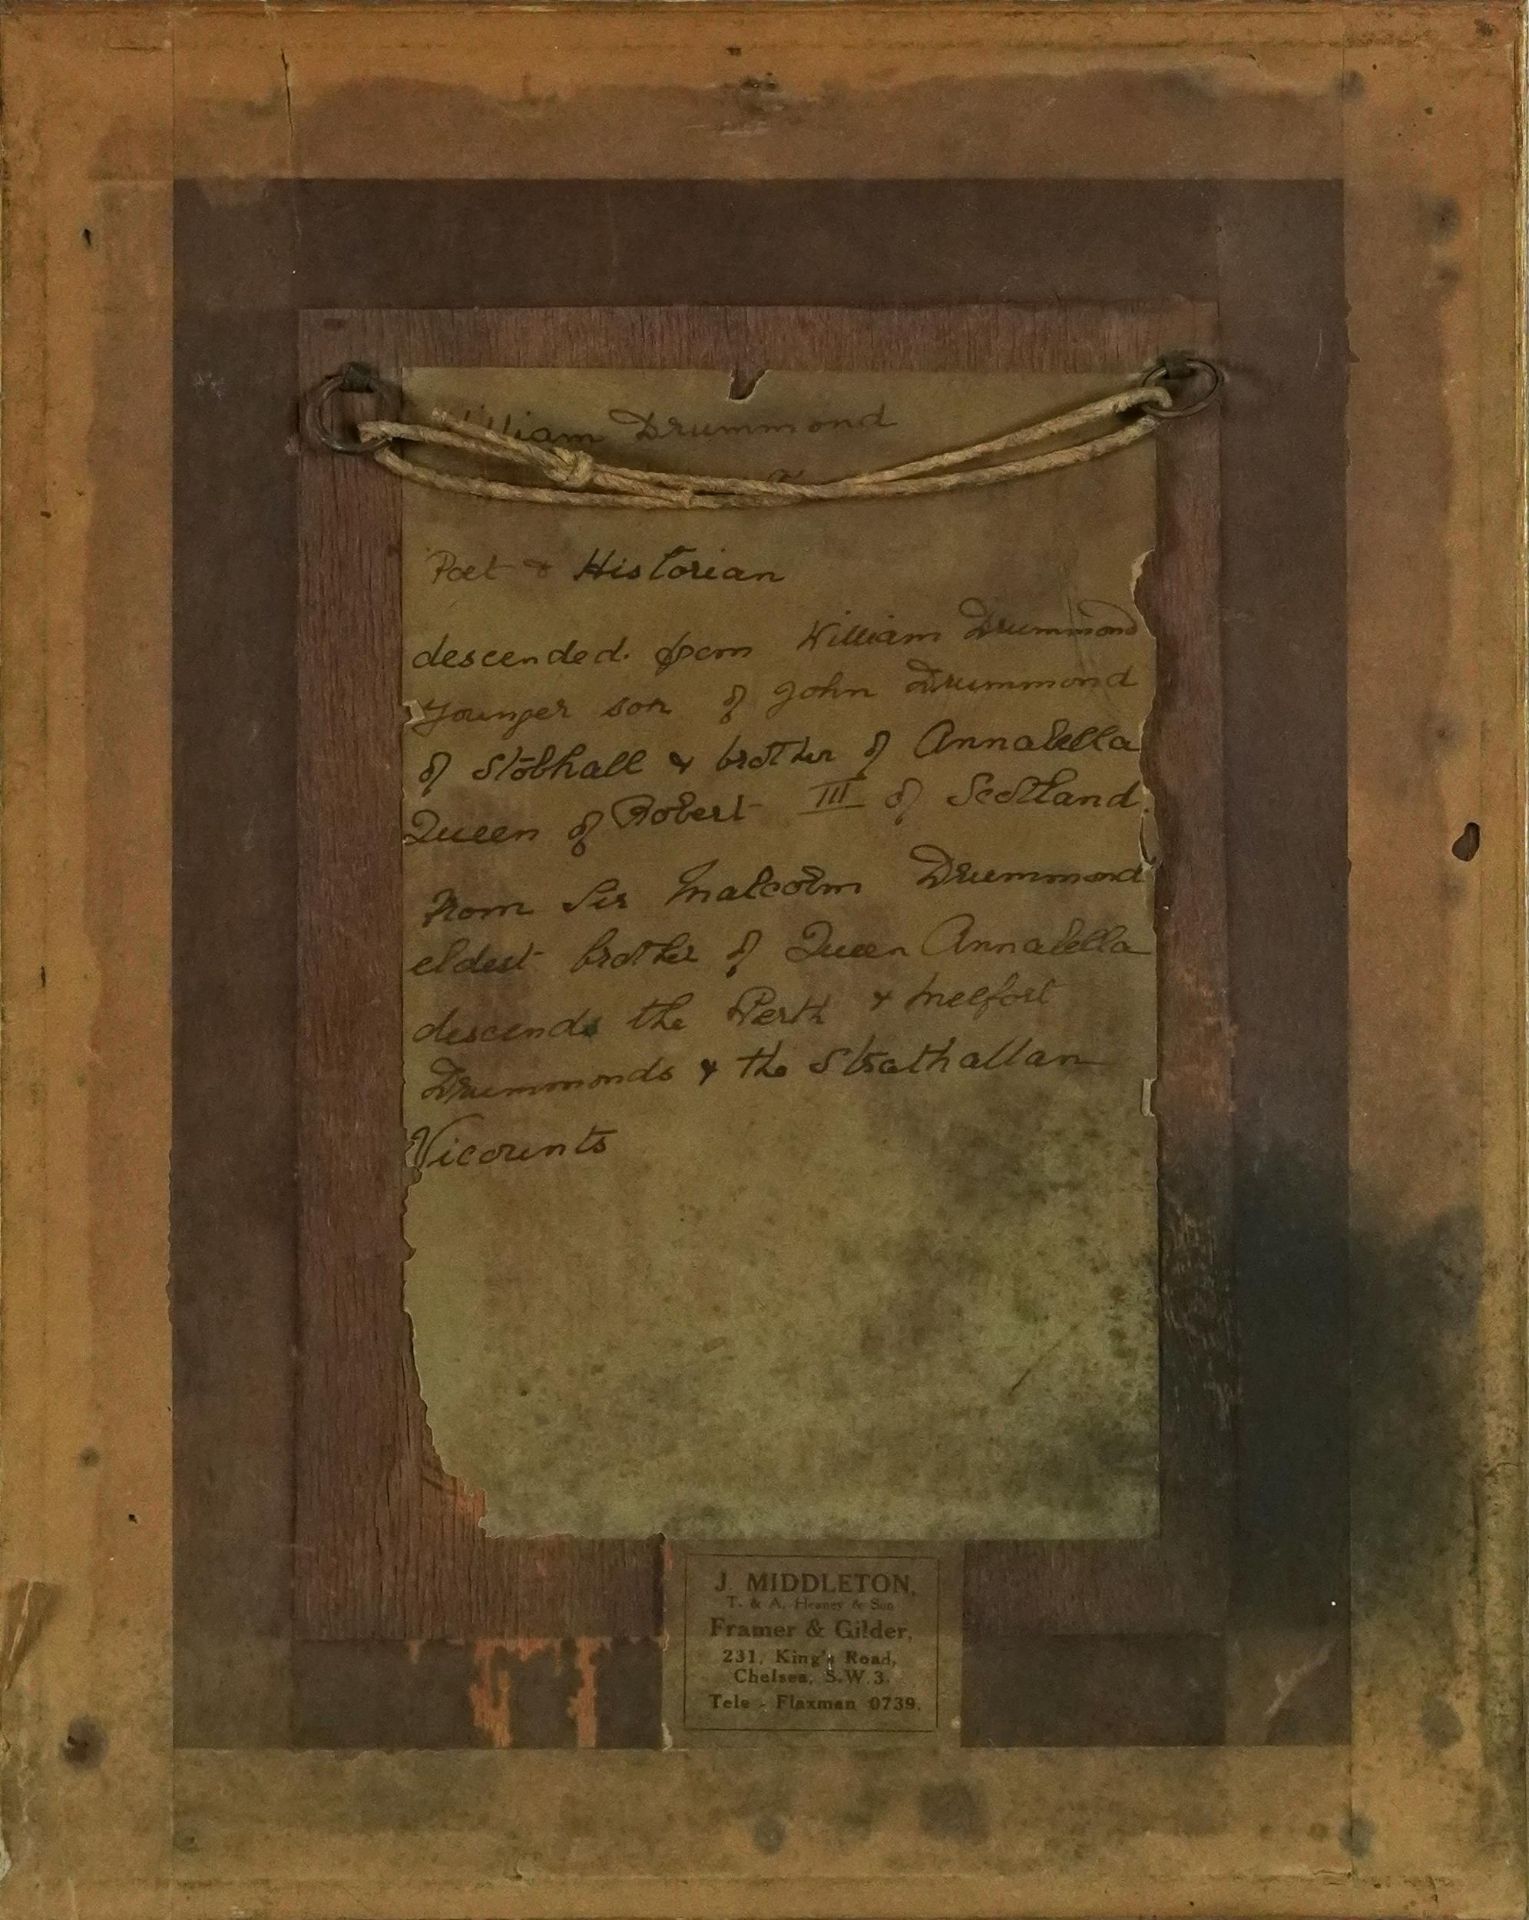 William Drummond
Poet & Historian
descended from William Drummond
Younger son of John Drummond
of Stobhall & brother of Annabella
Queen of Robert III of Scotland.
From Sir Malcolm Drummond
eldest brother of Queen Annabella
descends the Perth & Melfort
Drummonds & the Strathallan
Vicounts
J. MIDDLETON,
T. & A. Heaney & Son
Framer & Gilder,
231, King's Road,
Chelsea, S.W.3.
Tele - Flaxman 0739.